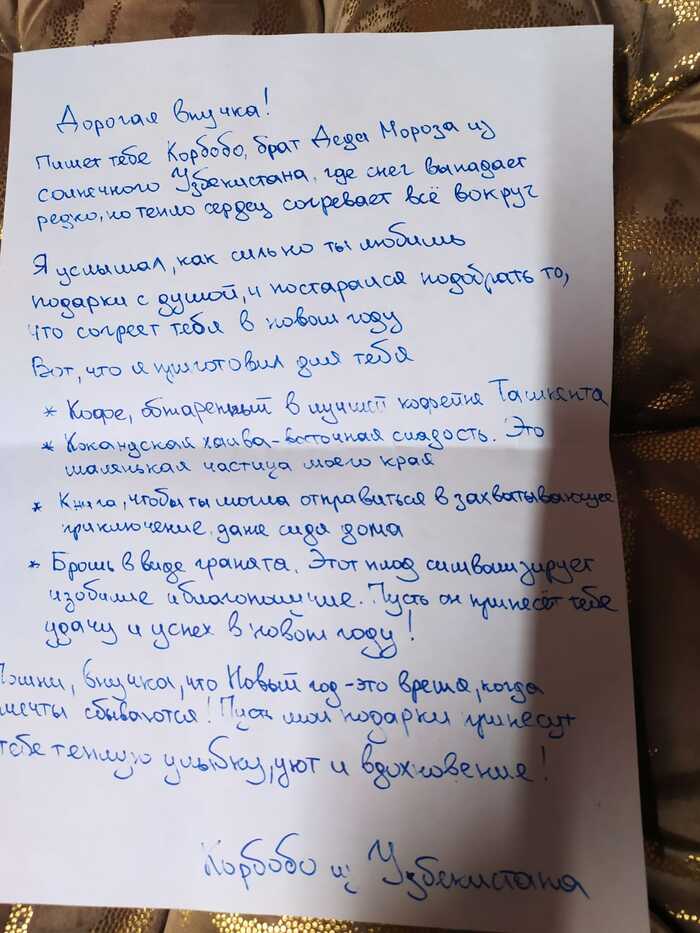 Дорогая внучка!
Пишет тебе Корбобо, брат Деда Мороза из
солнечного Узбекистана, где снег выпадает
редко, но тепло сердец согревает всё вокруг
Я услышал, как сильно ты любишь
подарки с душой, и постарался подобрать то,
что согреет тебя в новом году
Вот, что я приготовил для тебя
* Кофе, обжаренный в лучшей кофейне Ташкента
* Кокандская халва-восточная сладость. Это
маленькая частица моего края
* Книга, чтобы ты могла отправиться в захватывающее
приключение, даже сидя дома
* Брошь в виде граната. Этот плод символизирует
изобилие и благополучие. Пусть он принесёт тебе
удачу и успех в новом году!
Помни, внучка, что Новый год-это время, когда
мечты сбываются! Пусть мои подарки принесут
тебе теплую улыбку, уют и вдохновение!
Корбобо из Узбекистана